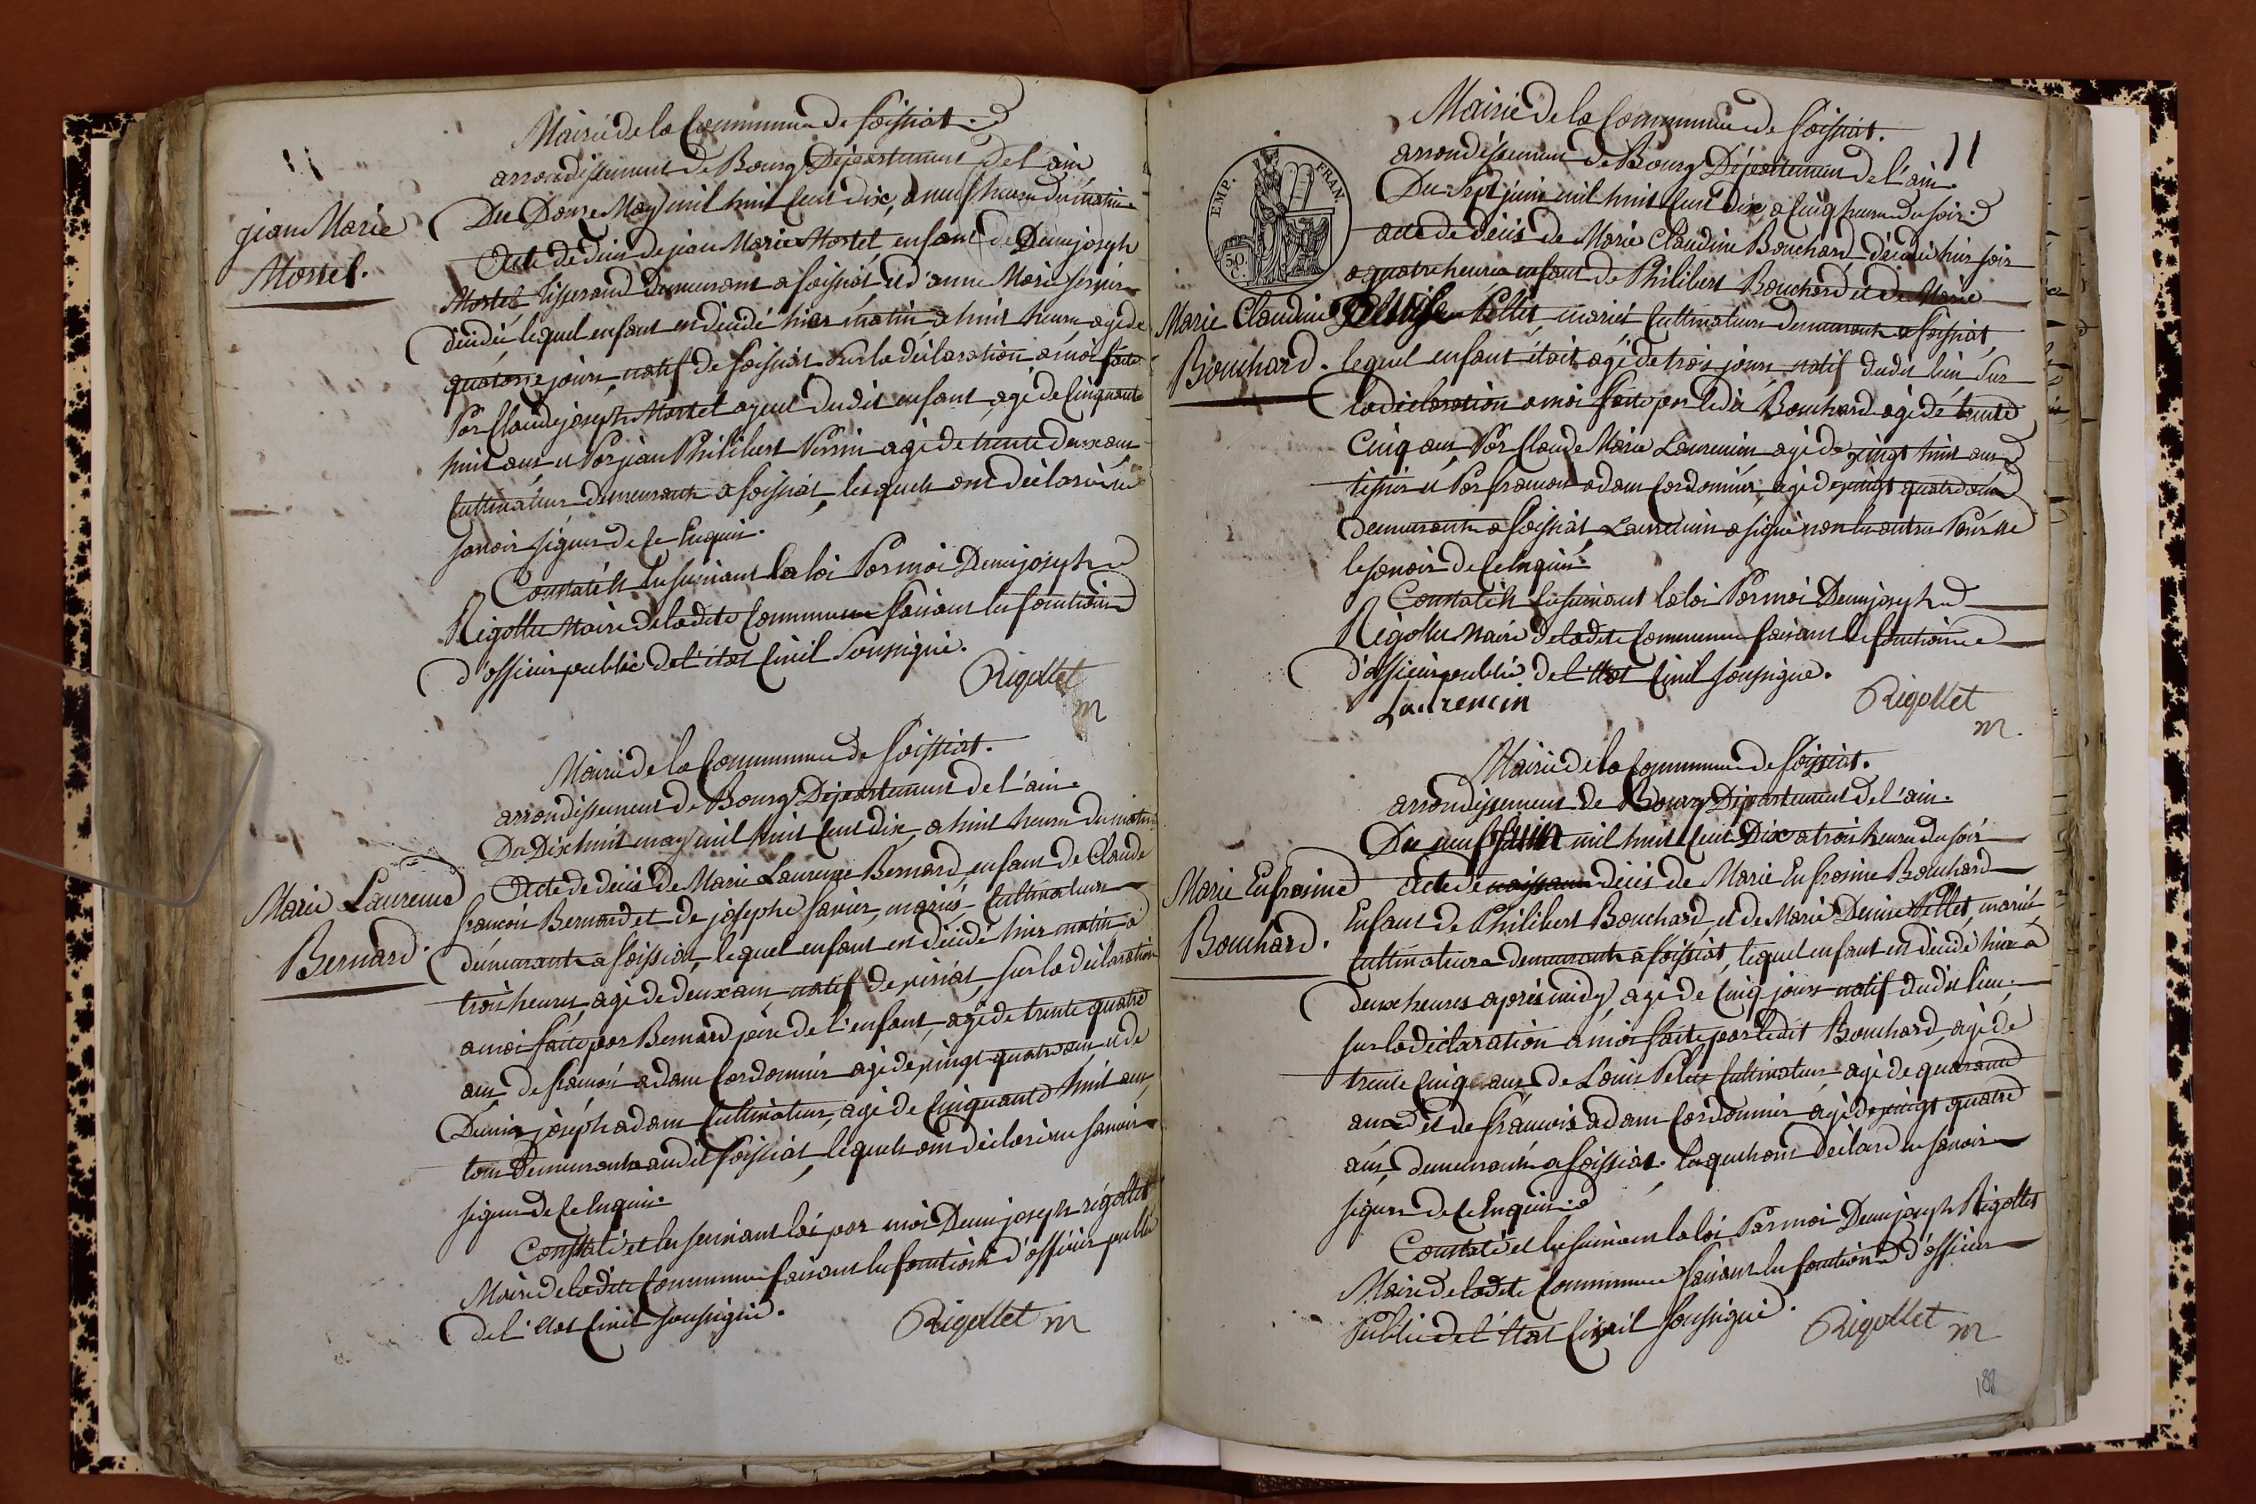 Mairie de la Commune de foissiat.
arrondissement de Bourg Département de l'ain
Du Douze May mil huit Cent dix, a neuf heures du matin
jean Marie
Mortel.
Acte de décès de jean Marie Mortel, enfant de Denis joseph
Mortel tisserand demeurant a foissiat et d'anne Marie
décédée, lequel enfant est décédé hier matin a huit heures agé de
quatorze jours, natif de foissiat sur la déclaration a moi faite
Par Claude joseph Mortel ayeul dudit enfant agé de Cinquante
huit ans et Par jean Philibert Perrin agé de trente deux ans
Cultivateurs demeurants a foissiat, lesquels ont déclaré ne
savoir signer de ce Enquis.
Constaté et lu suivant la loi Par moi Denis joseph
Rigollet Maire de ladite Commune faisant les fonctions
d'officier public de l'état Civil soussigné.
Rigollet
m
Mairie de la Commune de foissiat.
arrondissement de Bourg Département de l'ain.
Du Dix huit may mil huit Cent dix, a huit heures du matin
Marie Laurence
Bernard.
Acte de décès de Marie Laurence Bernard enfant de Claude
françois Bernard et de josephe favier, mariés Cultivateurs
demeurants a foissiat, lequel enfant est décédé hier matin a
trois heures, agé de deux ans natif de sur la déclaration
a moi faite par Bernard père de l'enfant, agé de trente quatre
ans, de françois adam Cordonnier agé de vingt quatre ans, et de
Denis joseph adam Cultivateur, agé de Cinquante huit ans
tous Demeurants audit foissiat, lesquels ont déclaré ne savoir
signer de Ce Enquis.
Constaté et lu suivant loi par moi Denis joseph rigollet
Maire de ladite Commune faisant les fonctions d'officier public
de l'état Civil soussigné.
Rigollet m
11
Mairie de la Commune de foissiat.
arrondissement de Bourg Département de l'ain
EMP. FRAN.
50
C.
Du sept juin mil huit Cent dix, a Cinq heures du soir.
acte de décès de Marie Claudine Bouchard, décédée hier soir
a quatre heures enfant de Philibert Bouchard et de Marie
Marie Claudine
Bouchard.
Denise Pellet, mariés Cultivateurs demeurants a foissiat,
lequel enfant était agé de trois jours natif dudit lieu sur
la déclaration a moi faite par ledit Bouchard agé de trente
Cinq ans Par Claude Marie Laurencin agé de vingt huit ans
tissier et Par françois adam Cordonnier, agé de vingt quatre ans
demeurants a foissiat Laurencin a signé non les autres Pour ne
le savoir de Ce Enquis.
Constaté et lu suivant la loi Par moi Denis joseph
Rigollet Maire de ladite Commune faisant les fonctions
d'officier public de l'état Civil soussigné.
Laurencin
Rigollet
m.
Mairie de la Commune de foissiat.
arrondissement de Bourg Département de l'ain.
Du neuf juin mil huit Cent Dix a trois heures du soir
Marie Eufrosine
Bouchard.
Acte de naissance décès de Marie Eufrosine Bouchard
Enfant de Philibert Bouchard, et de Marie Denise Pellet, mariés
Cultivateurs demeurants a foissiat, lequel enfant est décédé hier a
deux heures après midy, agé de Cinq jours natif dudit lieu,
sur la déclaration a moi faite par ledit Bouchard, agé de
trente Cinq ans de Louis Pellet Cultivateur agé de quarante
ans et de françois adam Cordonnier agé de vingt quatre
ans, demeurants a foissiat. lesquels ont déclaré ne savoir
signer de Ce Enquis
Constaté et lu suivant la loi Par moi Denis joseph Rigollet
Maire de ladite Commune faisant les fonctions d'officier
Public de l'état Civil soussigné.
Rigollet m
188